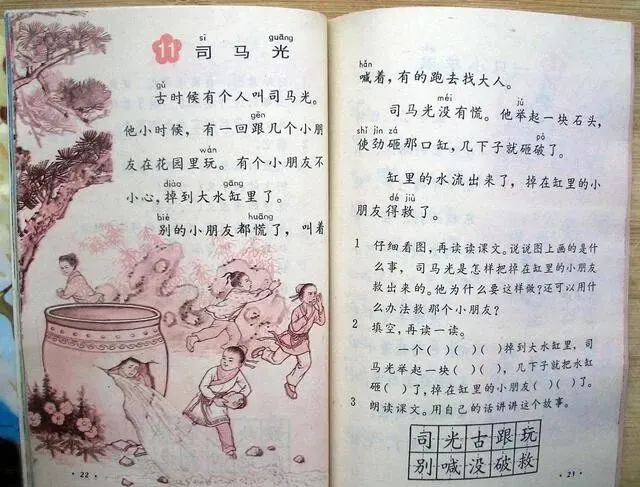 sī guāng
11 司马光
gǔ
古时候有个人叫司马光。
gēn
他小时候，有一回跟几个小朋
wán
友在花园里玩。有个小朋友不
diào gāng
小心，掉到大水缸里了。
bié huāng
别的小朋友都慌了，叫着
·22·
hǎn
喊着，有的跑去找大人。
méi jǔ
司马光没有慌。他举起一块石头，
shǐ jìn zá pò
使劲砸那口缸，几下子就砸破了。
缸里的水流出来了，掉在缸里的小
dé jiù
朋友得救了。
1 仔细看图，再读读课文。说说图上画的是什
么事，司马光是怎样把掉在缸里的小朋友
救出来的。他为什么要这样做？还可以用什
么办法救那个小朋友？
2 填空，再读一读。
一个（ ）（ ）（ ）掉到大水缸里，司
马光举起一块（ ）（ ），几下子就把水缸
砸（ ）了，掉在缸里的小朋友（ ）（ ）了。
3 朗读课文。用自己的话讲讲这个故事。
司光古跟玩
别喊没破救
·21·